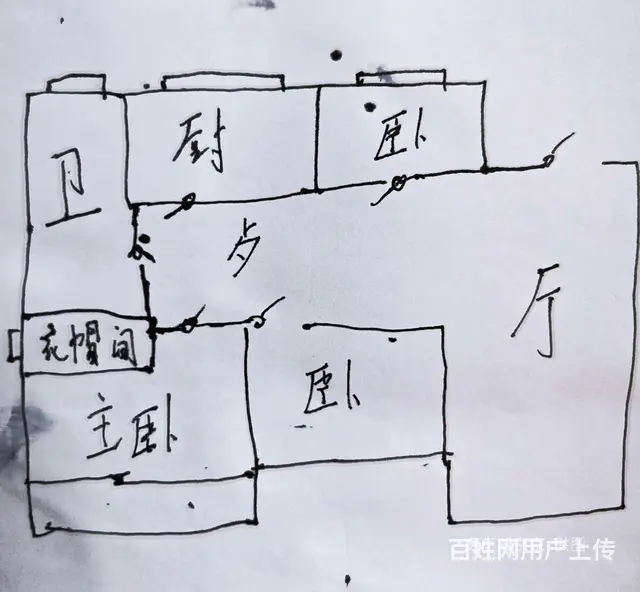 卫
厨
卧
厅
衣帽间
主卧
卧
百姓网用户上传